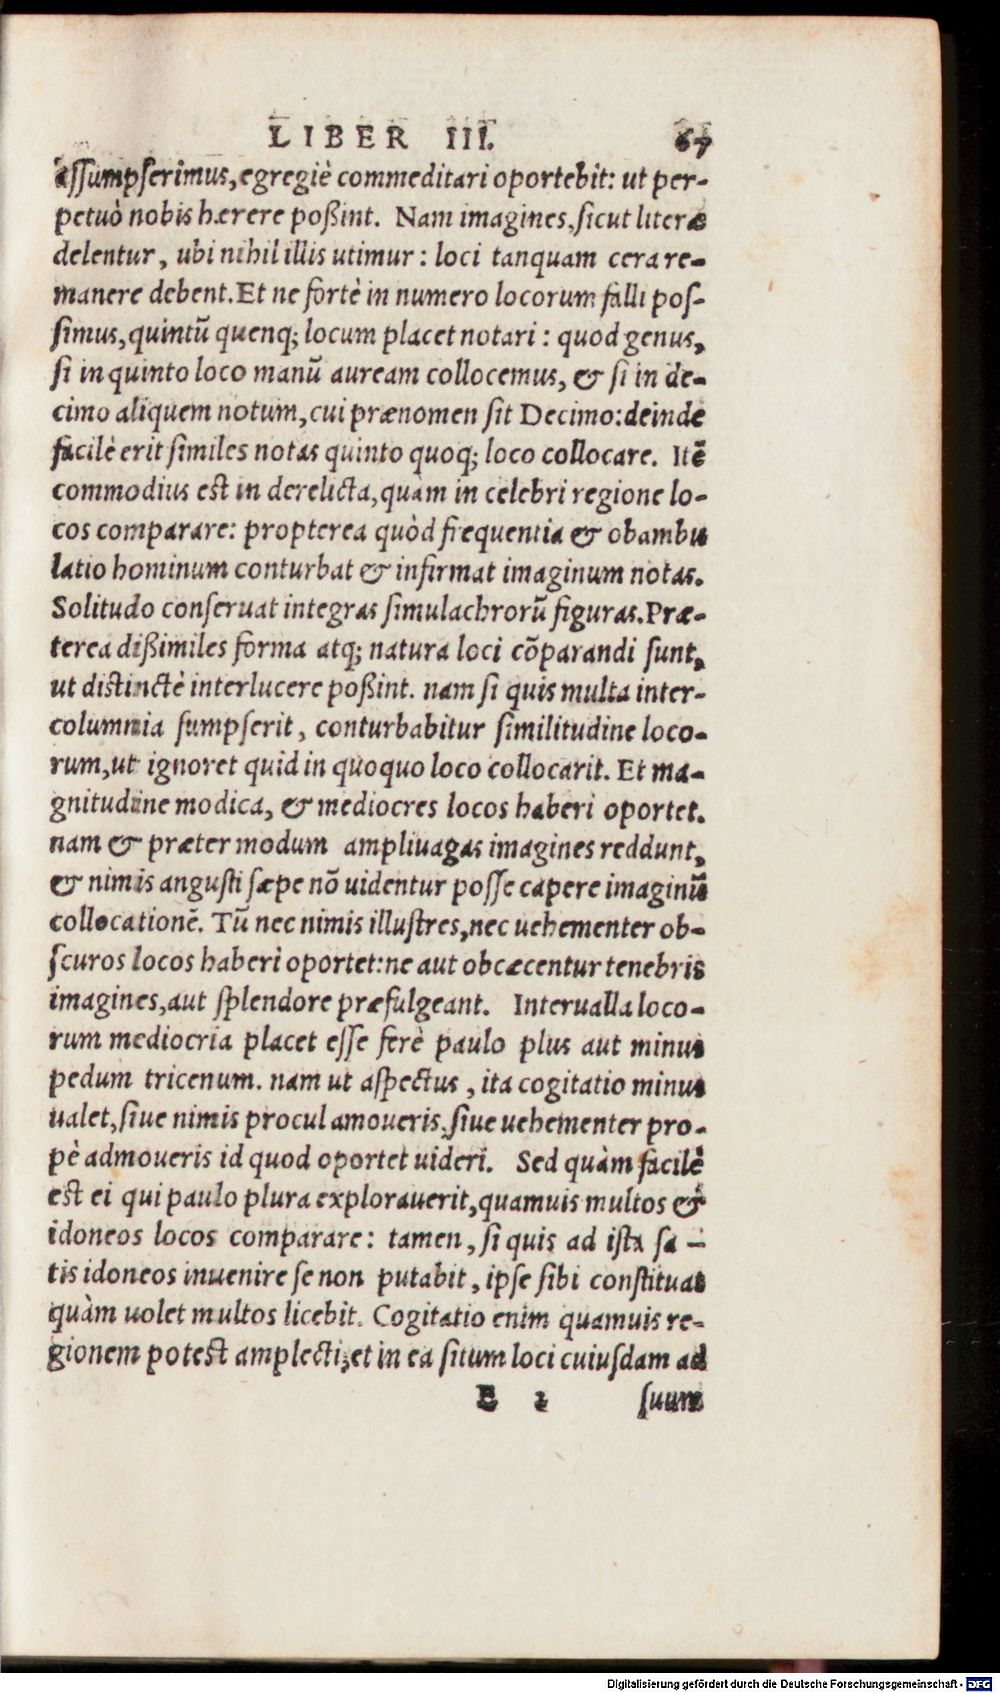 LIBER III. 67
assumpserimus, egregiè commeditari oportebit: ut per-
petuò nobis hærere poßint. Nam imagines, sicut literæ
delentur, ubi nihil illis utimur: loci tanquam cera re-
manere debent. Et ne fortè in numero locorum falli pos-
simus, quintũ quenq; locum placet notari: quod genus,
si in quinto loco manũ auream collocemus, & si in de-
cimo aliquem notum, cui prænomen sit Decimo: deinde
facilè erit similes notas quinto quoq; loco collocare. Itẽ
commodius est in derelicta, quam in celebri regione lo-
cos comparare: propterea quòd frequentia & obambu
latio hominum conturbat & infirmat imaginum notas.
Solitudo conseruat integras simulachrorũ figuras. Præ-
terea dißimiles forma atq; natura loci cõparandi sunt,
ut distinctè interlucere poßint. nam si quis multa inter-
columnia sumpserit, conturbabitur similitudine loco-
rum, ut ignoret quid in quoquo loco collocarit. Et ma-
gnitudine modica, & mediocres locos haberi oportet.
nam & præter modum ampli uagas imagines reddunt,
& nimis angusti sæpe nõ uidentur posse capere imaginũ
collocationẽ. Tũ nec nimis illustres, nec uehementer ob-
scuros locos haberi oportet: ne aut obcæcentur tenebris
imagines, aut splendore præfulgeant. Interualla loco-
rum mediocria placet esse ferè paulo plus aut minus
pedum tricenum. nam ut aspectus, ita cogitatio minus
ualet, siue nimis procul amoueris, siue uehementer pro-
pè admoueris id quod oportet uideri. Sed quàm facilè
est ei qui paulo plura explorauerit, quamuis multos &
idoneos locos comparare: tamen, si quis ad ista sa-
tis idoneos inuenire se non putabit, ipse sibi constituat
quàm uolet multos licebit. Cogitatio enim quamuis re-
gionem potest amplecti, et in ea situm loci cuiusdam ad
E 2 suum
Digitalisierung gefördert durch die Deutsche Forschungsgemeinschaft - DFG